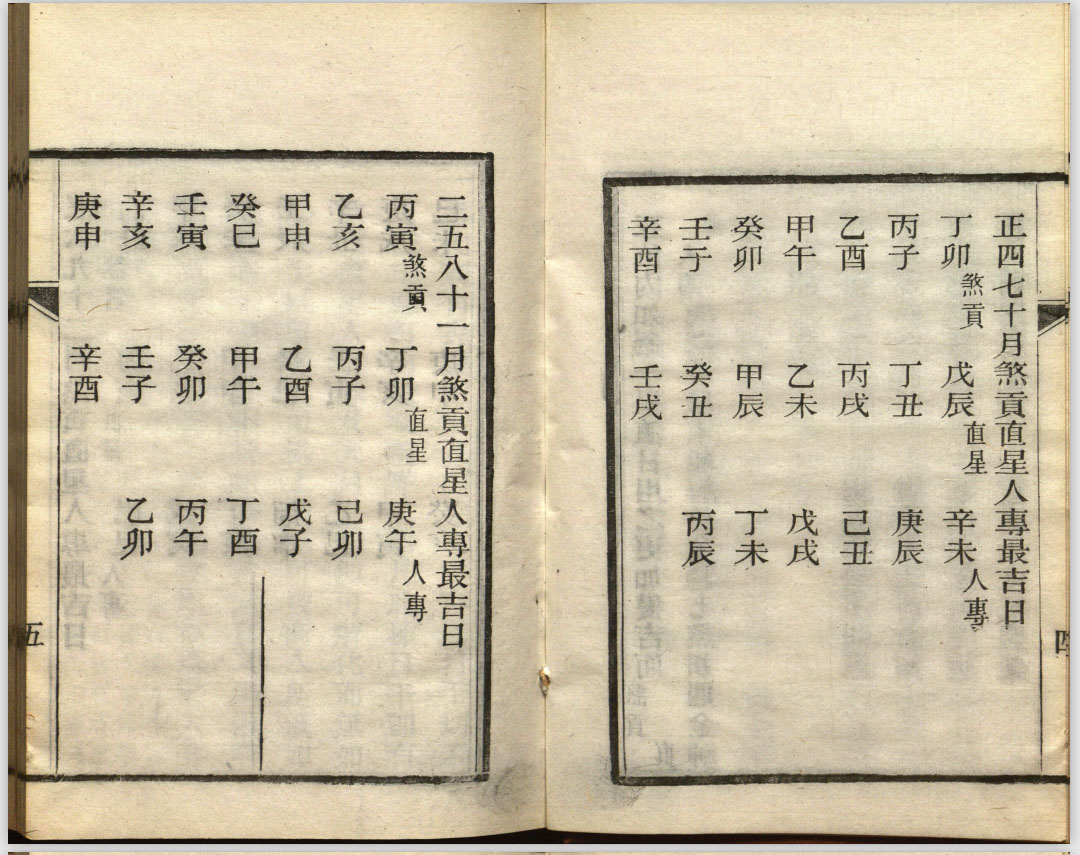 正四七十月煞貢直星人專最吉日
丁卯煞貢 戊辰直星 辛未人專
丙子 丁丑 庚辰
乙酉 丙戌 己丑
甲午 乙未 戊戌
癸卯 甲辰 丁未
壬子 癸丑 丙辰
辛酉 壬戌
二五八十一月煞貢直星人專最吉日
丙寅煞貢 丁卯直星 庚午人專
乙亥 丙子 己卯
甲申 乙酉 戊子
癸巳 甲午 丁酉
壬寅 癸卯 丙午
辛亥 壬子 乙卯
庚申 辛酉
五